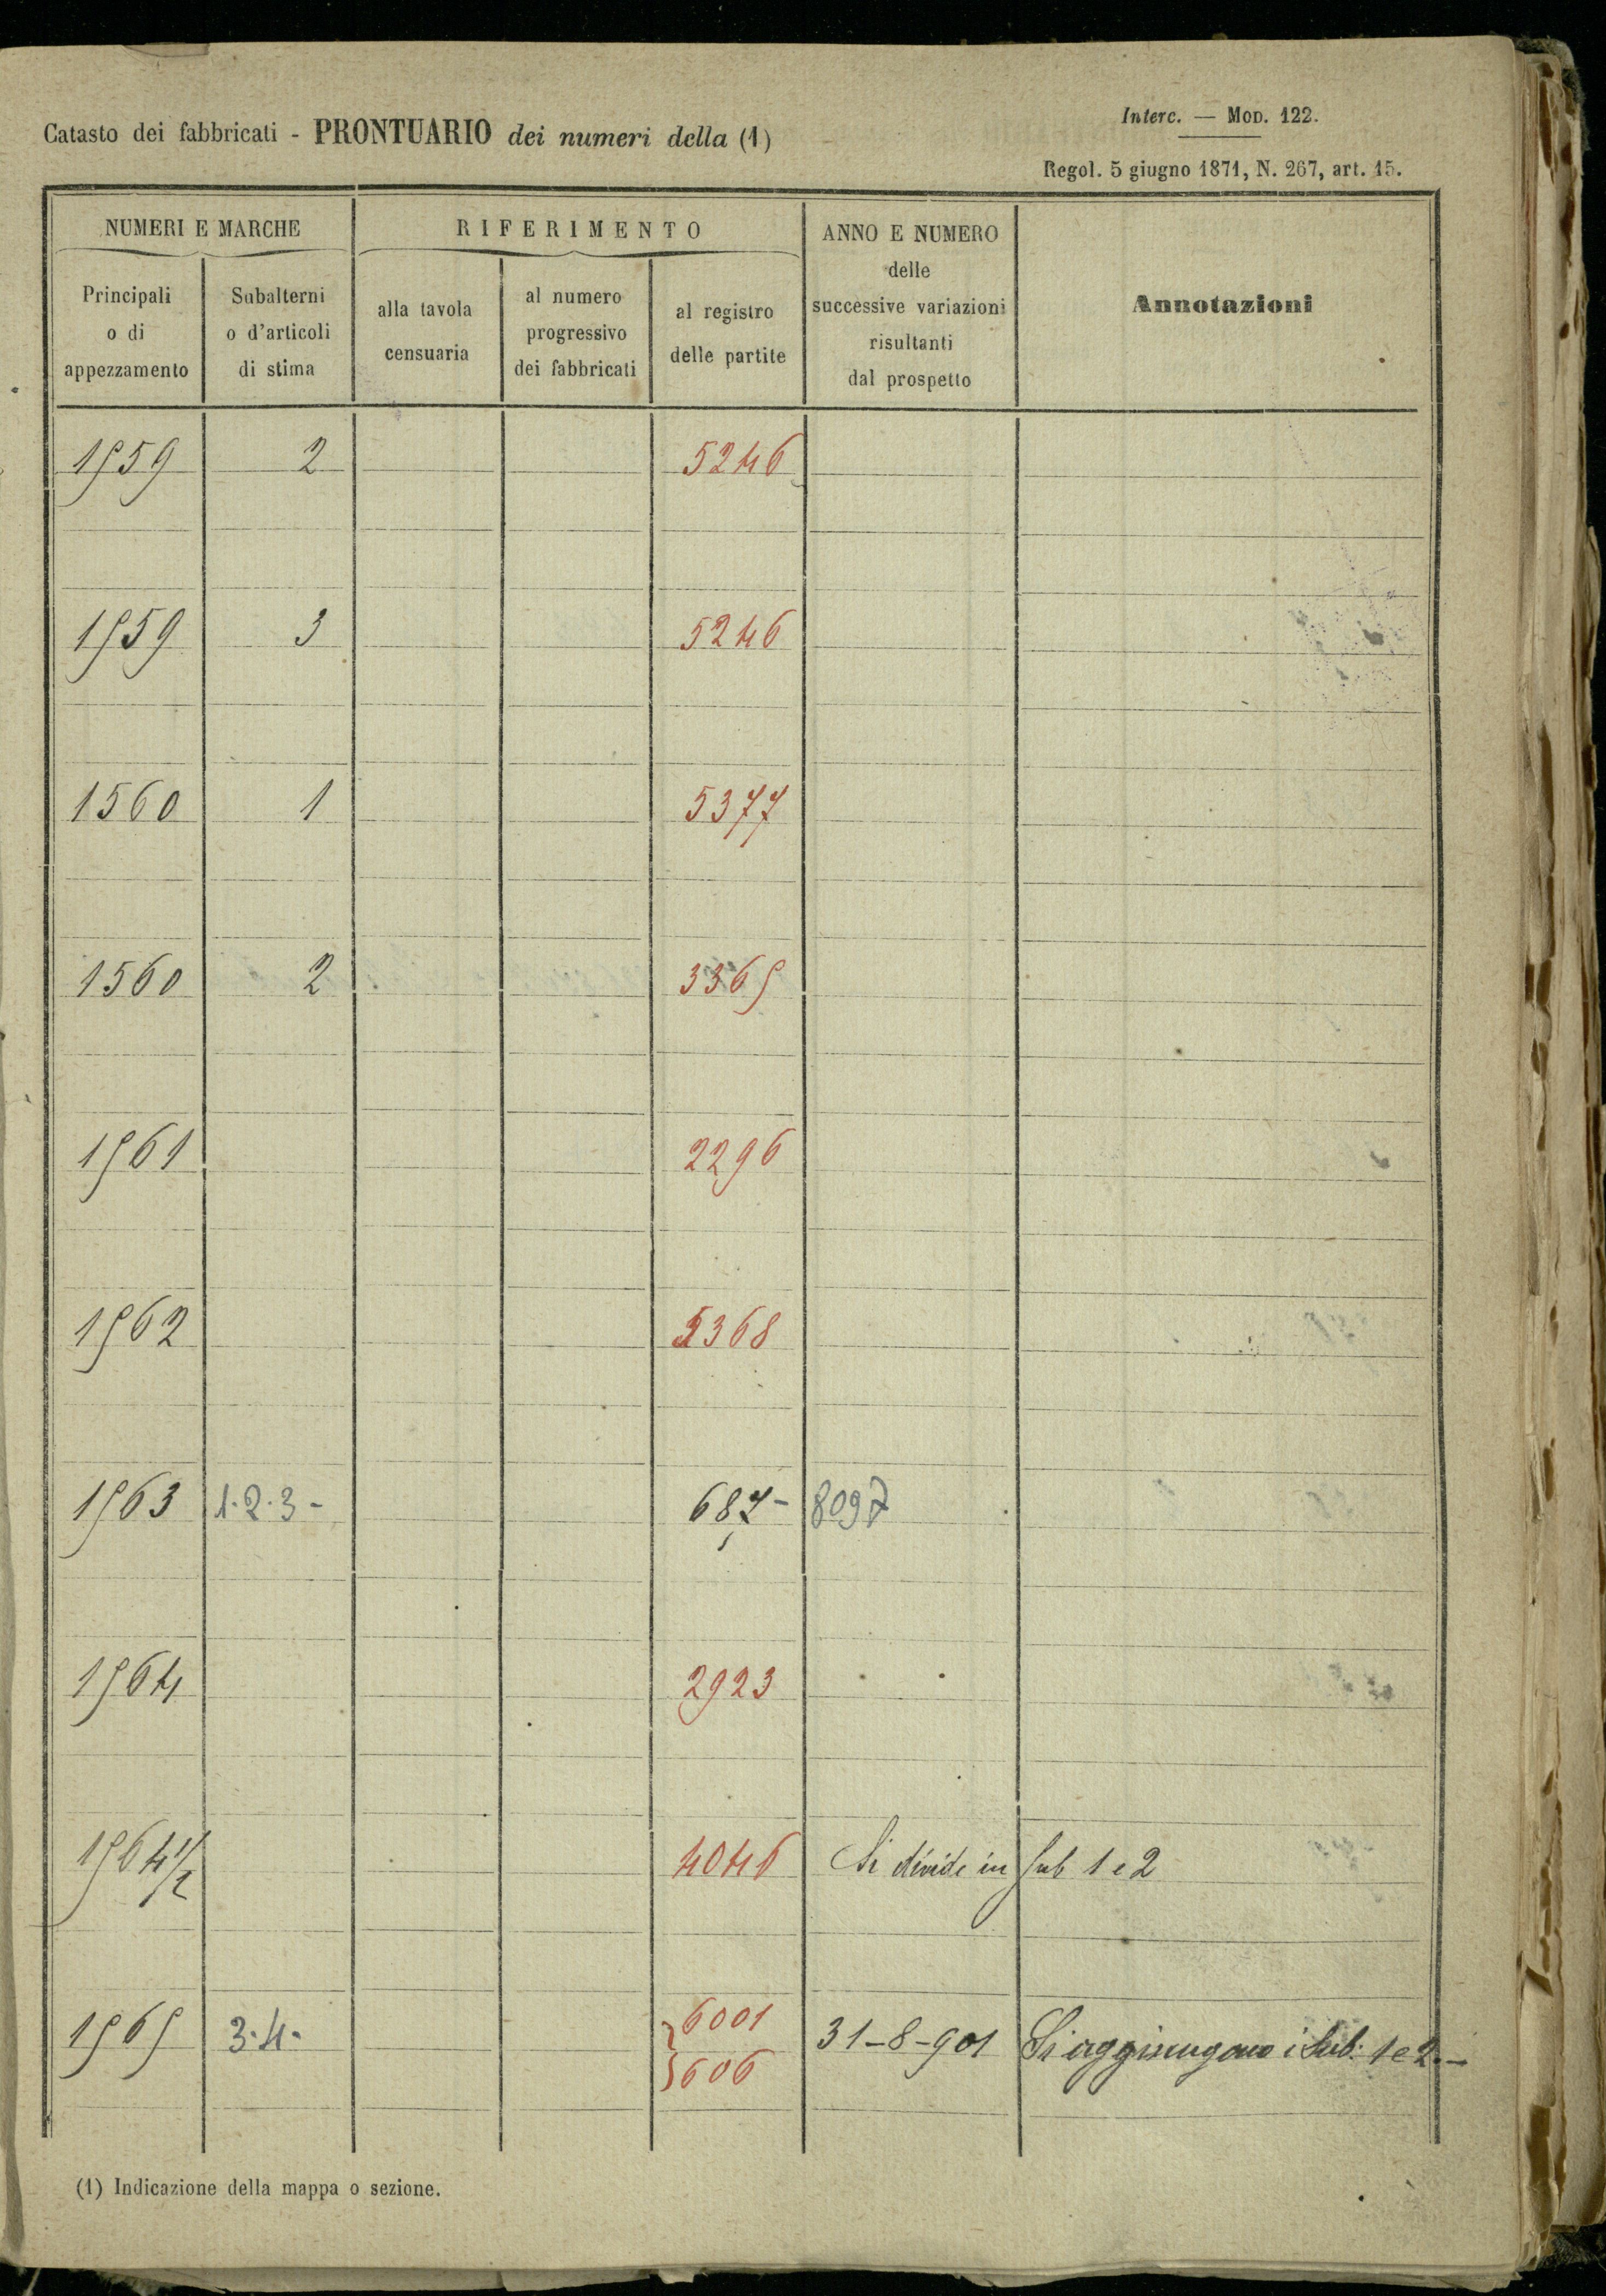 Interc. — Mod. 122.
Catasto dei fabbricati - PRONTUARIO dei numeri della (1)
Regol. 5 giugno 1871, N. 267, art. 15.
NUMERI E MARCHE
RIFERIMENTO
ANNO E NUMERO
delle
successive variazioni
risultanti
dal prospetto
Annotazioni
Principali
o di
appezzamento
Subalterni
o d'articoli
di stima
alla tavola
censuaria
al numero
progressivo
dei fabbricati
al registro
delle partite
1559 2 5246
1559 3 5246
1560 1 5377
1560 2 3365
1561 2296
1562 5368
1563 1.2.3- 687- 8097
1564 2923
1564 1/2 4046 Si divide in sub 1 e 2
1565 3.4. 6001 31-8-901 Si aggiungono i Sub: 1 e 2.-
606
(1) Indicazione della mappa o sezione.